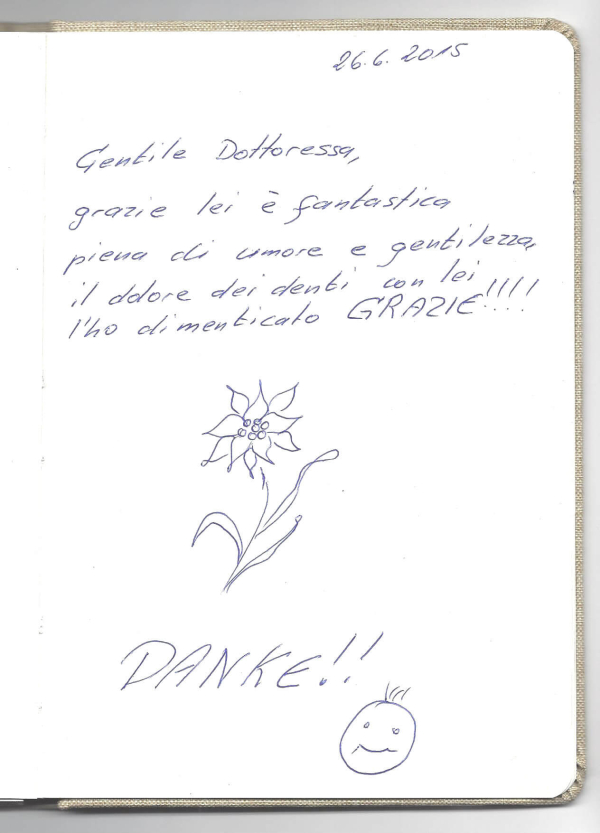 26.6.2015
Gentile Dottoressa,
grazie lei è fantastica
piena di umore e gentilezza,
il dolore dei denti con lei
l'ho dimenticato GRAZIE!!!!
DANKE!!